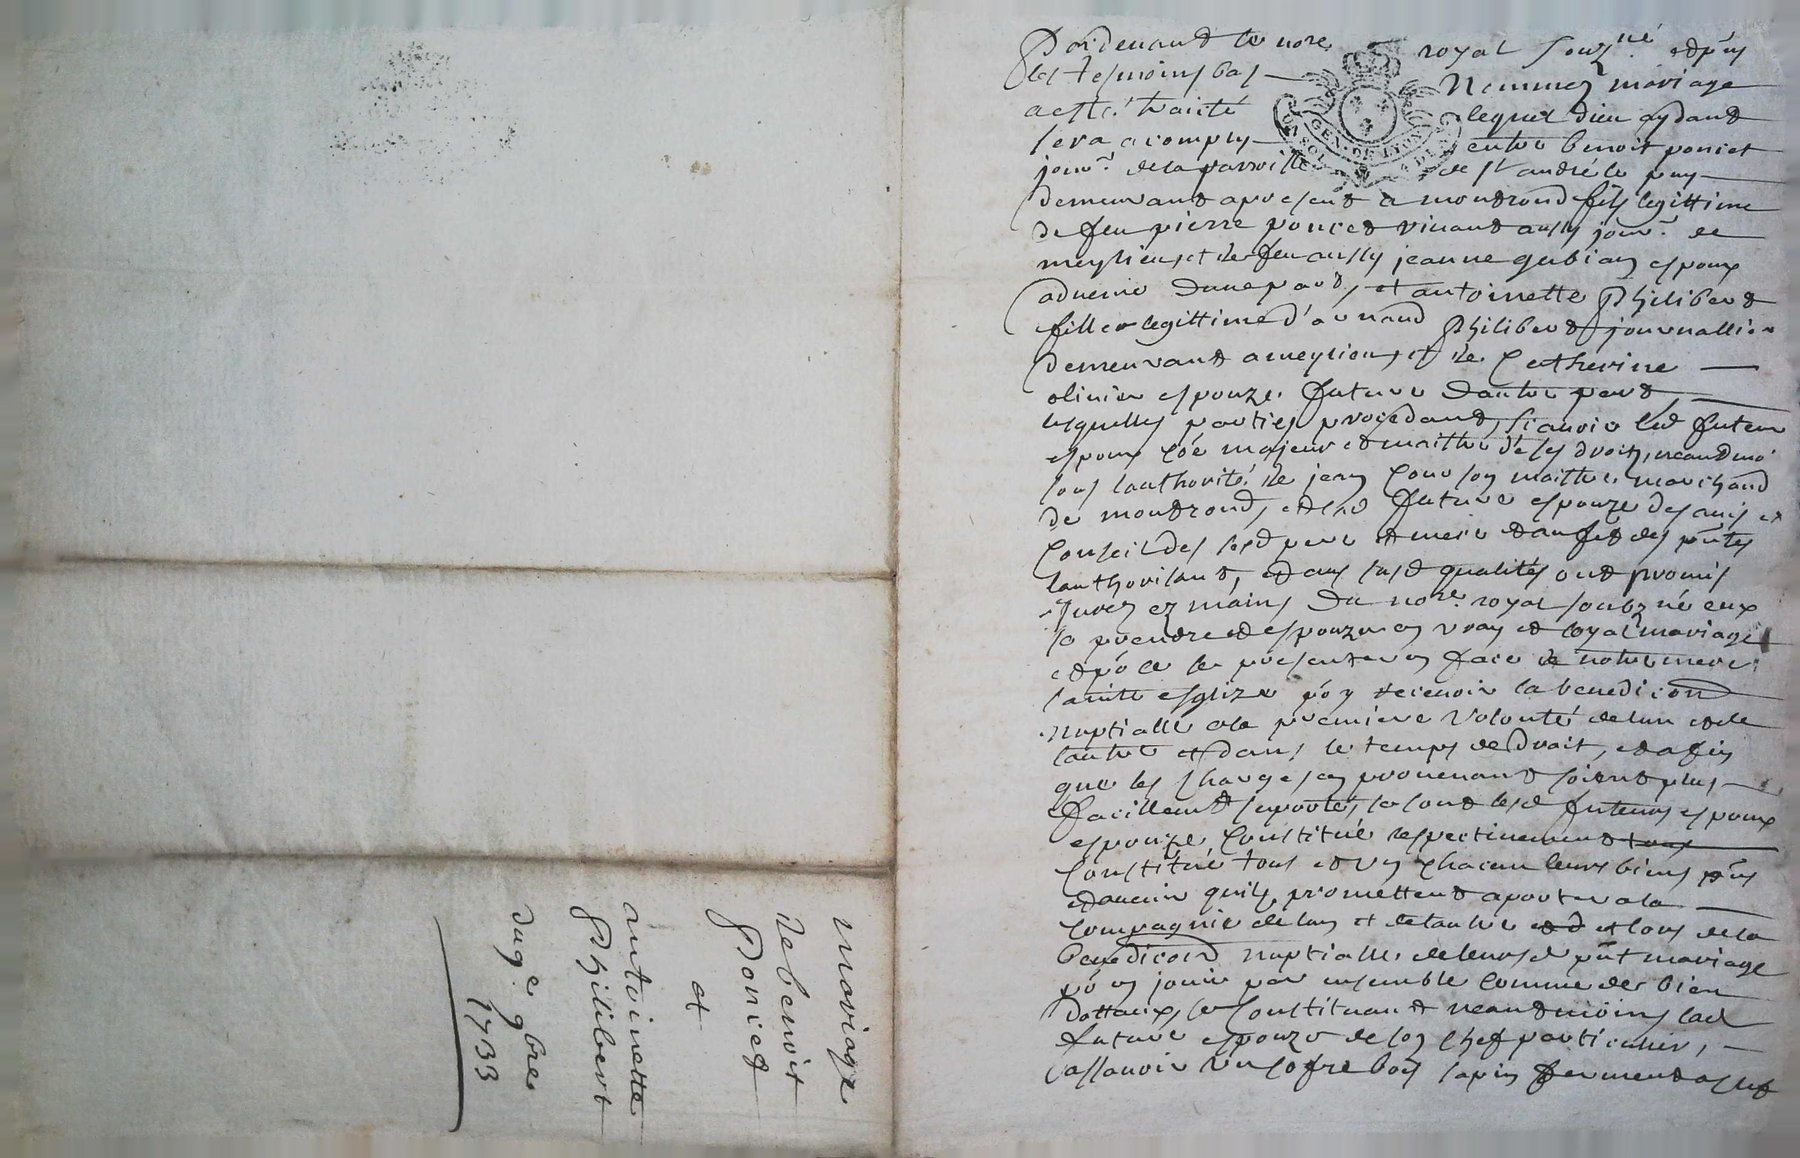 Pardevant le nore royal souzné et pñs
les tesmoins bas nommez mariage
a esté traité lequel dieu aydant
sera acomply entre benoit poncet
jourr de la parroisse de st andré le puy
demeurant a present a montrond fils legittime
de feu pierre poncet vivant aussy jourr de
meylieu, et de feu aussy jeanne gubian espoux
advenir dune part, et antoinette Philibert
fille legittime d'arnaud Philibert journallier
demeurant a meylieu, et de Catherine
olivier espouze future dautre part
lesquelles parties procedant, scavoir led futeur
espoux majeur et maittre de ses droits, neandmo
sous lauthorité de jean son maittre marchand
de montrond, et lad future espouze de l'avis et
conseil des sesd pere et mere
lauthorisant, et aus susd qualités ont promis
jurez ez mains du nore royal soubzné eux
prendre et espouzer en vray et loyal mariage
et po ce se presenter en face de notre mere
sainte esglize po y recevoir la benedicon
nuptialle a la premiere volonté de lun et de
lautre et dans le temps de droit, et afin
que les charges en provenant soient plus
facillemt suportés, se sont lesd futeurs espoux
espouze, constitué respectivement
constitué tous et un chacun leurs biens pñs
et avenir quils promettent aporter a la
compagnie de lun et de lautre et lors de la
benedicon nuptialle de leursd pñt mariage
po en jouir par ensemble comme de bien
dottaux, se constituant neandmoins lad
future espouze de son chef particulier,
assavoir un cofre bois sapin fermant a clef
GEN. DE LYON
mariage
de benoit
Poncet
et
antoinette
Philibert
du 9e 9bre
1733